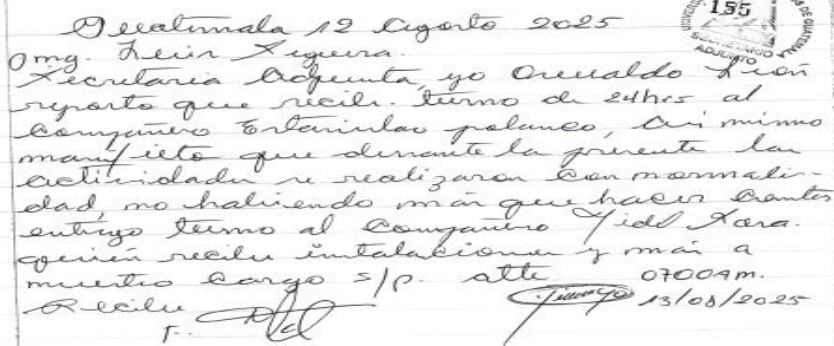 Guatemala 12 Agosto 2025
155
Luis Figueroa.
SECRETARIO
ADJUNTO
Secretaria Adjunta, yo Oswaldo León
reporto que recibi. turno de 24hrs al
compañero Estanislao polanco, Asi mismo
manifiesto que durante la presente las
actividades se realizaron con normali-
dad, no habiendo más que hacer constar
entrego turno al compañero
quien recibe instalaciones y más a
nuestro cargo s/p. atte 0700Am.
Recibe 13/08/2025
F.